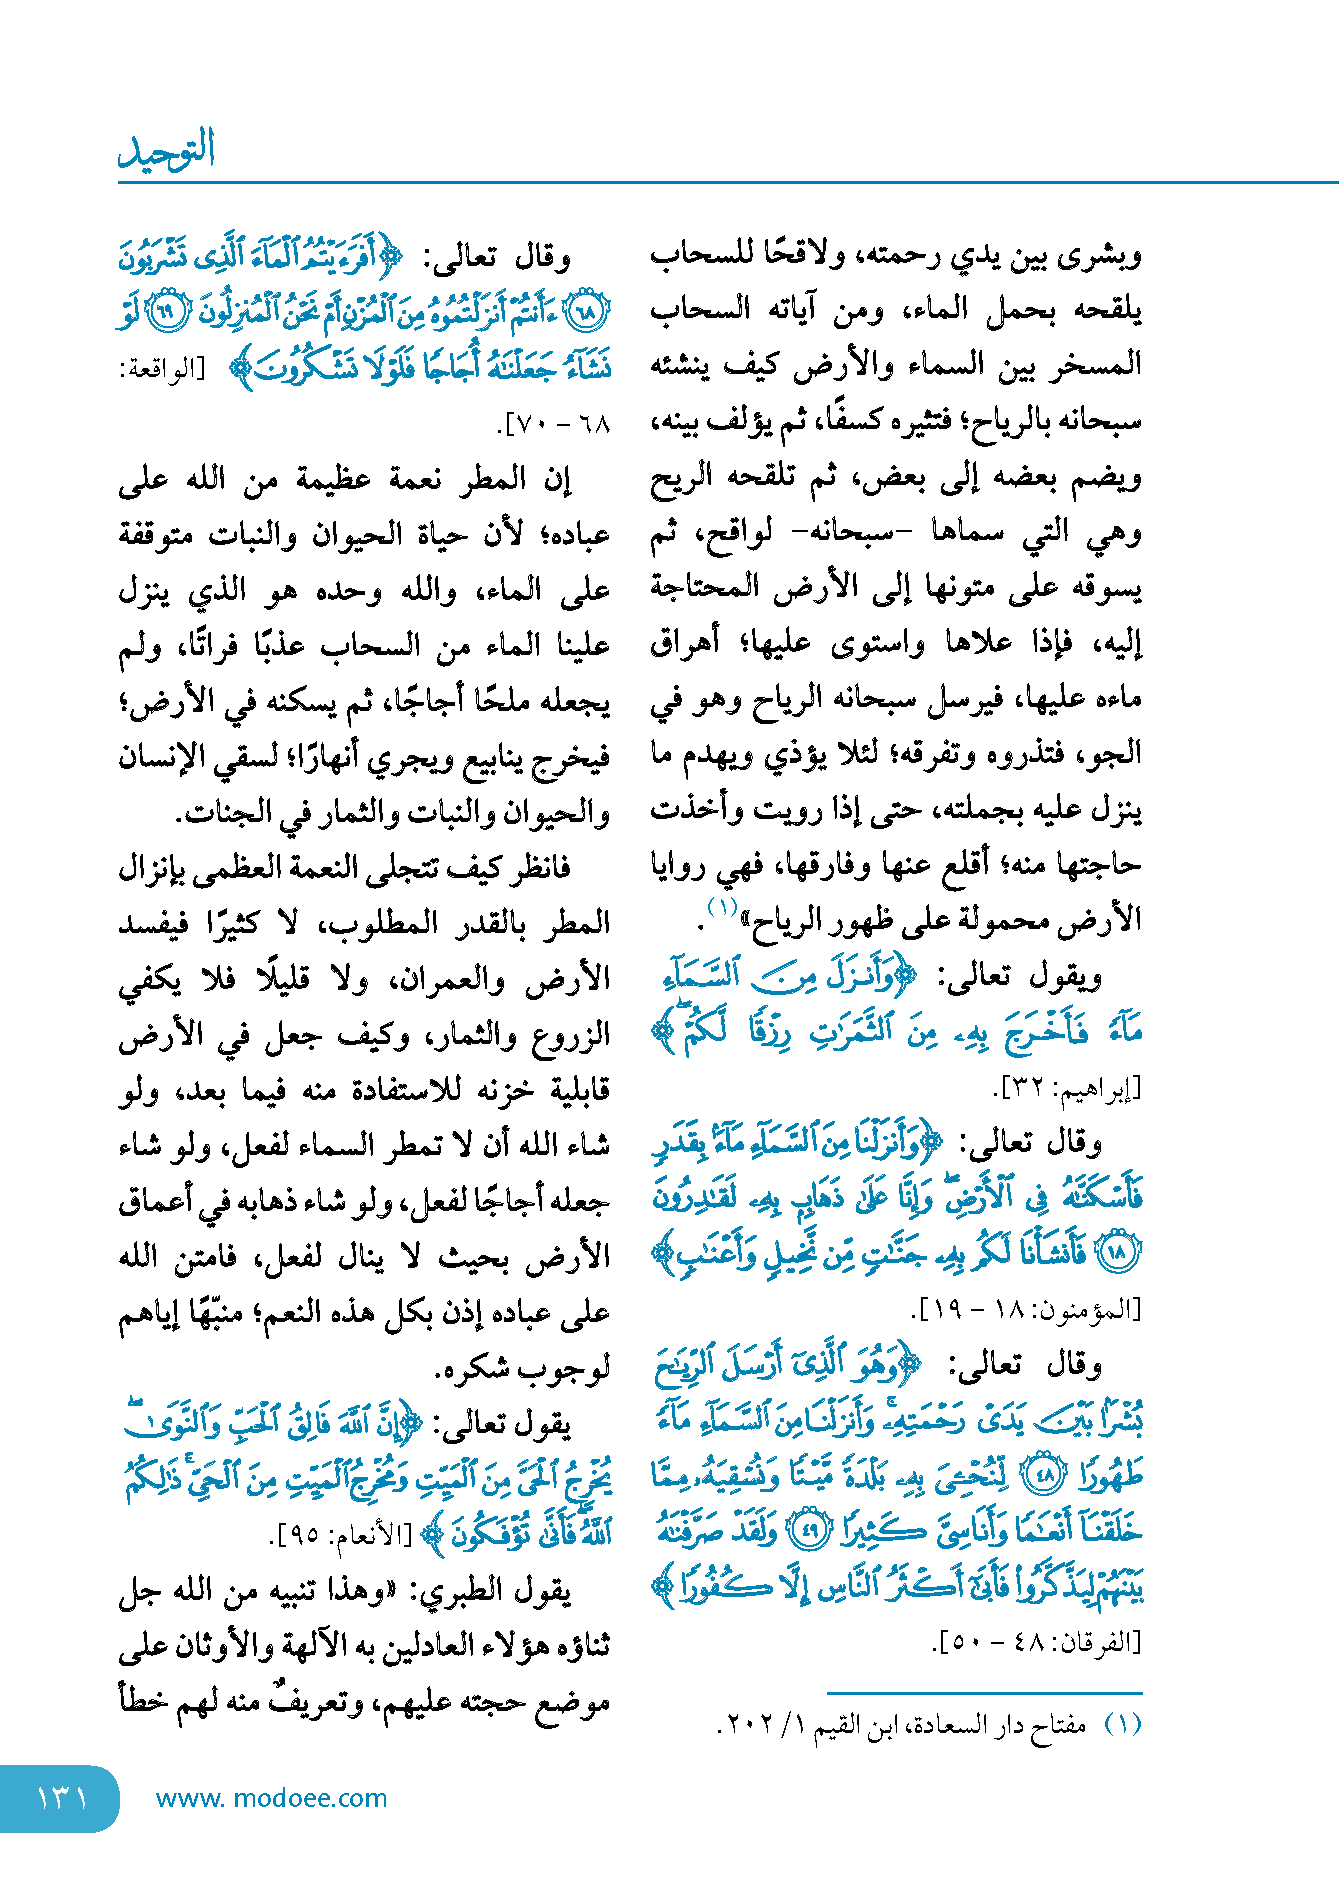 التوحيد
وبشرى بين يدي رحمته، ولاقحًا للسحاب
يلقحه بحمل الماء، ومن آياته السحاب
المسخر بين السماء والأرض كيف ينشئه
سبحانه بالرياح؛ فتثيره كسفًا، ثم يؤلف بينه،
ويضم بعضه إلى بعض، ثم تلقحه الريح
وهي التي سماها -سبحانه- لواقح، ثم
يسوقه على متونها إلى الأرض المحتاجة
إليه، فإذا علاها واستوى عليها؛ أهراق
ماءه عليها، فيرسل سبحانه الرياح وهو في
الجو، فتذروه وتفرقه؛ لئلا يؤذي ويهدم ما
ينزل عليه بجملته، حتى إذا رويت وأخذت
حاجتها منه؛ أقلع عنها وفارقها، فهي روايا
الأرض محمولة على ظهور الرياح»(١).
ويقول تعالى: ﴿وَأَنزَلَ مِنَ ٱلسَّمَآءِ
مَآءً فَأَخْرَجَ بِهِۦ مِنَ ٱلثَّمَرَٰتِ رِزْقًا لَّكُمْ ۖ﴾
[إبراهيم: ٣٢].
وقال تعالى: ﴿وَأَنزَلْنَا مِنَ ٱلسَّمَآءِ مَآءًۢ بِقَدَرٍ
فَأَسْكَنَّٰهُ فِى ٱلْأَرْضِ ۖ وَإِنَّا عَلَىٰ ذَهَابٍۭ بِهِۦ لَقَٰدِرُونَ
(١٨) فَأَنشَأْنَا لَكُم بِهِۦ جَنَّٰتٍ مِّن نَّخِيلٍ وَأَعْنَٰبٍ﴾
[المؤمنون: ١٨ - ١٩].
وقال تعالى: ﴿وَهُوَ ٱلَّذِىٓ أَرْسَلَ ٱلرِّيَٰحَ
بُشْرًۢا بَيْنَ يَدَىْ رَحْمَتِهِۦ ۚ وَأَنزَلْنَا مِنَ ٱلسَّمَآءِ مَآءً
طَهُورًا (٤٨) لِّنُحْۦِىَ بِهِۦ بَلْدَةً مَّيْتًا وَنُسْقِيَهُۥ مِمَّا
خَلَقْنَآ أَنْعَٰمًا وَأَنَاسِىَّ كَثِيرًا (٤٩) وَلَقَدْ صَرَّفْنَٰهُ
بَيْنَهُمْ لِيَذَّكَّرُوا۟ فَأَبَىٰٓ أَكْثَرُ ٱلنَّاسِ إِلَّا كُفُورًا﴾
[الفرقان: ٤٨ - ٥٠].
(١) مفتاح دار السعادة، ابن القيم ١/ ٢٠٢.
وقال تعالى: ﴿أَفَرَءَيْتُمُ ٱلْمَآءَ ٱلَّذِى تَشْرَبُونَ
(٦٨) ءَأَنتُمْ أَنزَلْتُمُوهُ مِنَ ٱلْمُزْنِ أَمْ نَحْنُ ٱلْمُنزِلُونَ (٦٩) لَوْ
نَشَآءُ جَعَلْنَٰهُ أُجَاجًا فَلَوْلَا تَشْكُرُونَ﴾ [الواقعة:
٦٨ - ٧٠].
إن المطر نعمة عظيمة من الله على
عباده؛ لأن حياة الحيوان والنبات متوقفة
على الماء، والله وحده هو الذي ينزل
علينا الماء من السحاب عذبًا فراتًا، ولم
يجعله ملحًا أجاجًا، ثم يسكنه في الأرض؛
فيخرج ينابيع ويجري أنهارًا؛ لسقي الإنسان
والحيوان والنبات والثمار في الجنات.
فانظر كيف تتجلى النعمة العظمى بإنزال
المطر بالقدر المطلوب، لا كثيرًا فيفسد
الأرض والعمران، ولا قليلًا فلا يكفي
الزروع والثمار، وكيف جعل في الأرض
قابلية خزنه للاستفادة منه فيما بعد، ولو
شاء الله أن لا تمطر السماء لفعل، ولو شاء
جعله أجاجًا لفعل، ولو شاء ذهابه في أعماق
الأرض بحيث لا ينال لفعل، فامتن الله
على عباده إذن بكل هذه النعم؛ منبّهًا إياهم
لوجوب شكره.
يقول تعالى: ﴿إِنَّ ٱللَّهَ فَالِقُ ٱلْحَبِّ وَٱلنَّوَىٰ ۖ
يُخْرِجُ ٱلْحَىَّ مِنَ ٱلْمَيِّتِ وَمُخْرِجُ ٱلْمَيِّتِ مِنَ ٱلْحَىِّ ۚ ذَٰلِكُمُ
ٱللَّهُ ۖ فَأَنَّىٰ تُؤْفَكُونَ﴾ [الأنعام: ٩٥].
يقول الطبري: «وهذا تنبيه من الله جل
ثناؤه هؤلاء العادلين به الآلهة والأوثان على
موضع حجته عليهم، وتعريفٌ منه لهم خطأ
١٣١
www. modoee.com